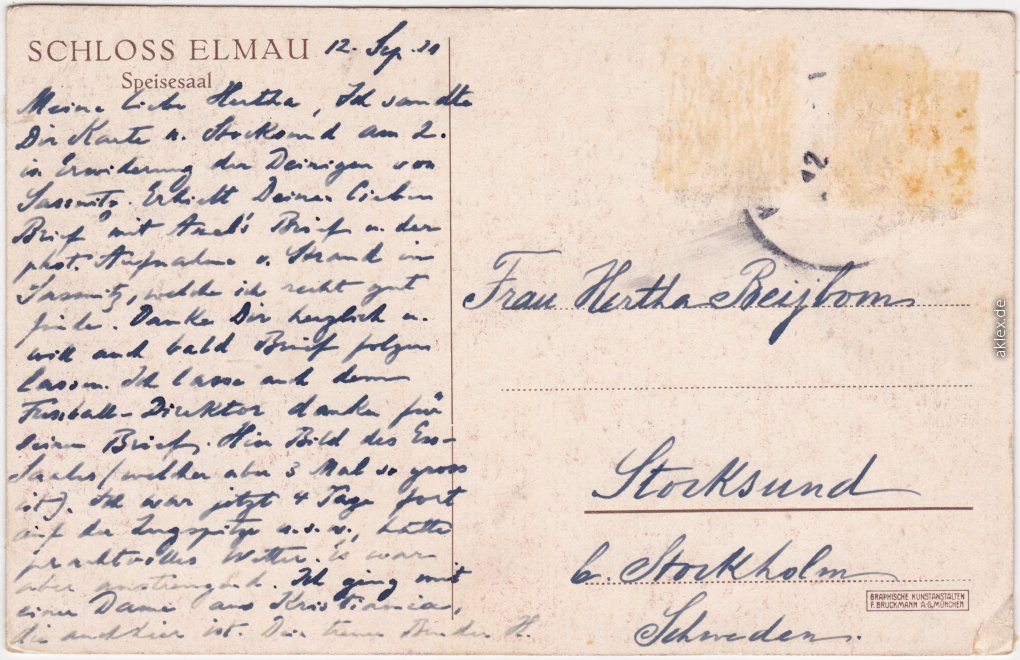 SCHLOSS ELMAU 12. Sep. 21
Speisesaal
Meine liebe Hertha, Ich sandte
Dir Karte n. Stocksund am 2.
in Erwiderung der Deinigen von
Sassnitz. Erhielt Deinen lieben
Brief mit Axel's Brief u. der
phot. Aufnahme v. Strand in
Sassnitz, welche ich recht gut
finde. Danke Dir herzlich u.
will auch bald Brief folgen
lassen. Ich lasse auch dem
Fussball-Direktor danken für
seinen Brief. Hier Bild des Ess-
Saales (welcher aber 3 Mal so gross
ist). Ich war jetzt 4 Tage fort
auf der Zugspitze u.s.w., hatte
prachtvolles Wetter. Es war
aber anstrengend. Ich ging mit
einer Dame aus Kristiania,
die auch hier ist. Dein treuer Bruder H.
12
Frau Hertha Beijbom
Stocksund
b. Stockholm
Schweden.
GRAPHISCHE KUNSTANSTALTEN
F. BRUCKMANN A.-G., MÜNCHEN
aklex.de